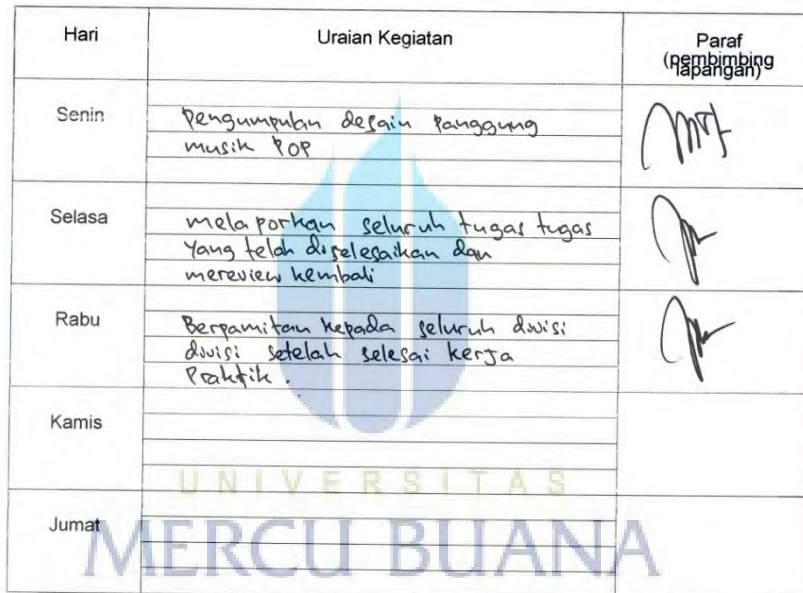 Hari
Uraian Kegiatan
Paraf
(pembimbing
lapangan)
Senin
Pengumpulan desain Panggung
musik POP
Selasa
melaporkan seluruh tugas tugas
yang telah diselesaikan dan
mereview kembali
Rabu
Berpamitan kepada seluruh divisi
divisi setelah selesai kerja
Praktik.
Kamis
Jumat
UNIVERSITAS
MERCU BUANA